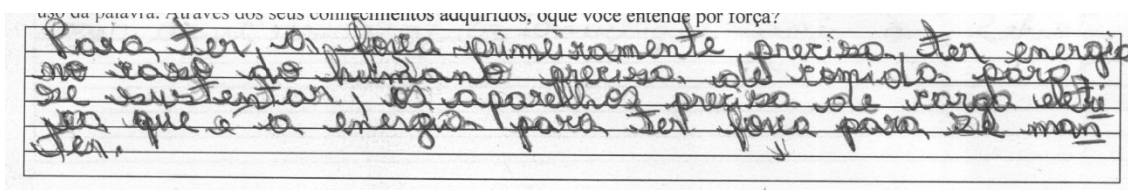 uso da palavra. Através dos seus conhecimentos adquiridos, oque você entende por força?
Para ter a força primeiramente precisa ter energia
no caso do humano precisa de comida para
se sustentar, os aparelhos precisa de carga eletri
ca que é a energia para ter força para se man
ter.